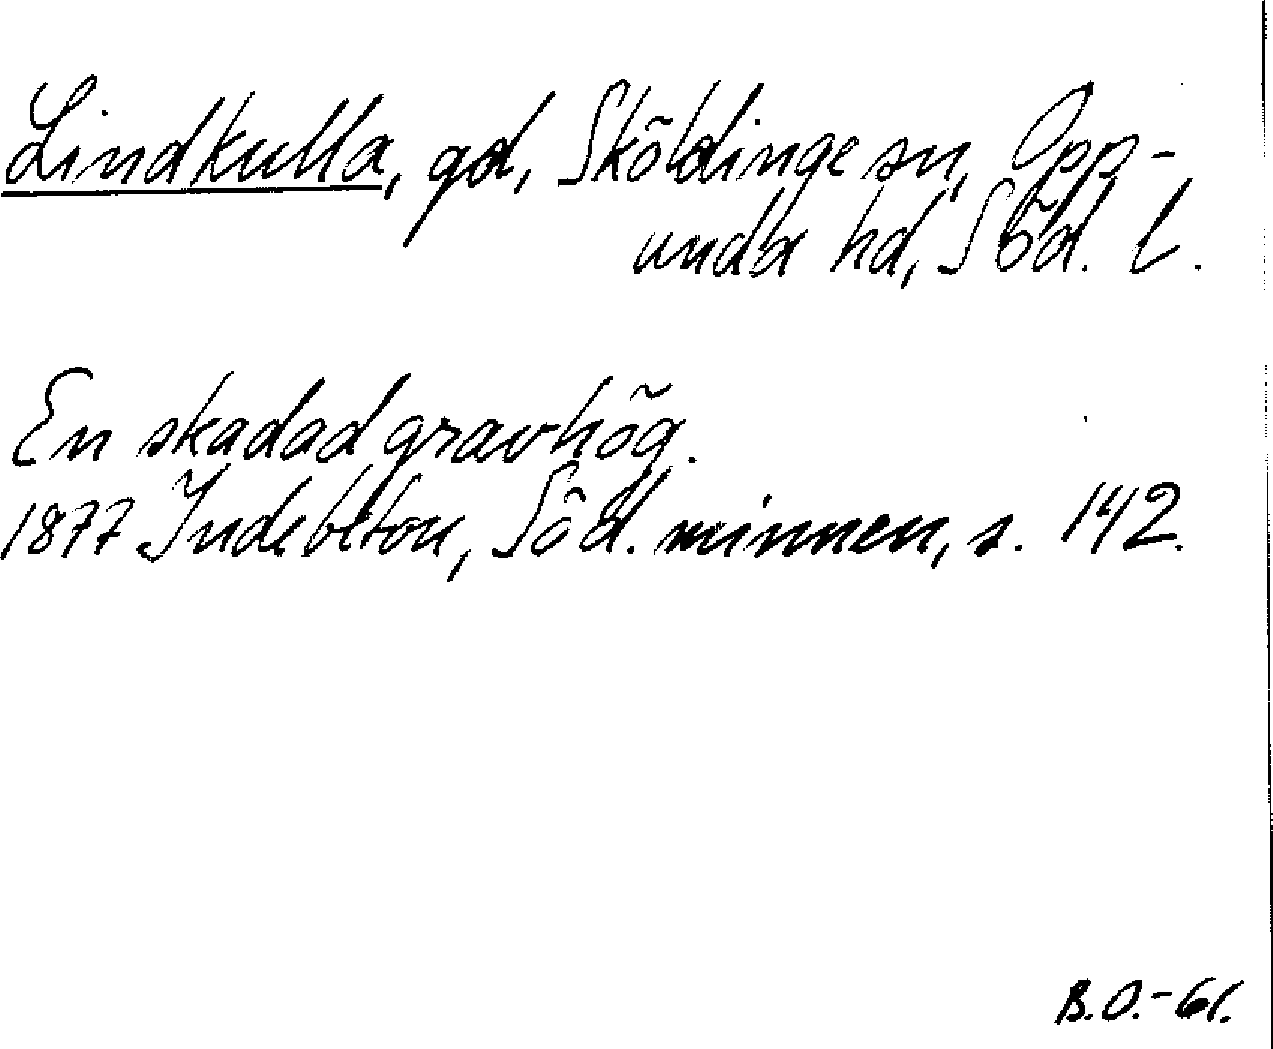 Lindkulla, gd, Sköldinge sn, Opp-
unda hd, Söd. l.
En skadad gravhög.
1877 Indebetou, Söd. minnen, s. 142.
B.O.-61.